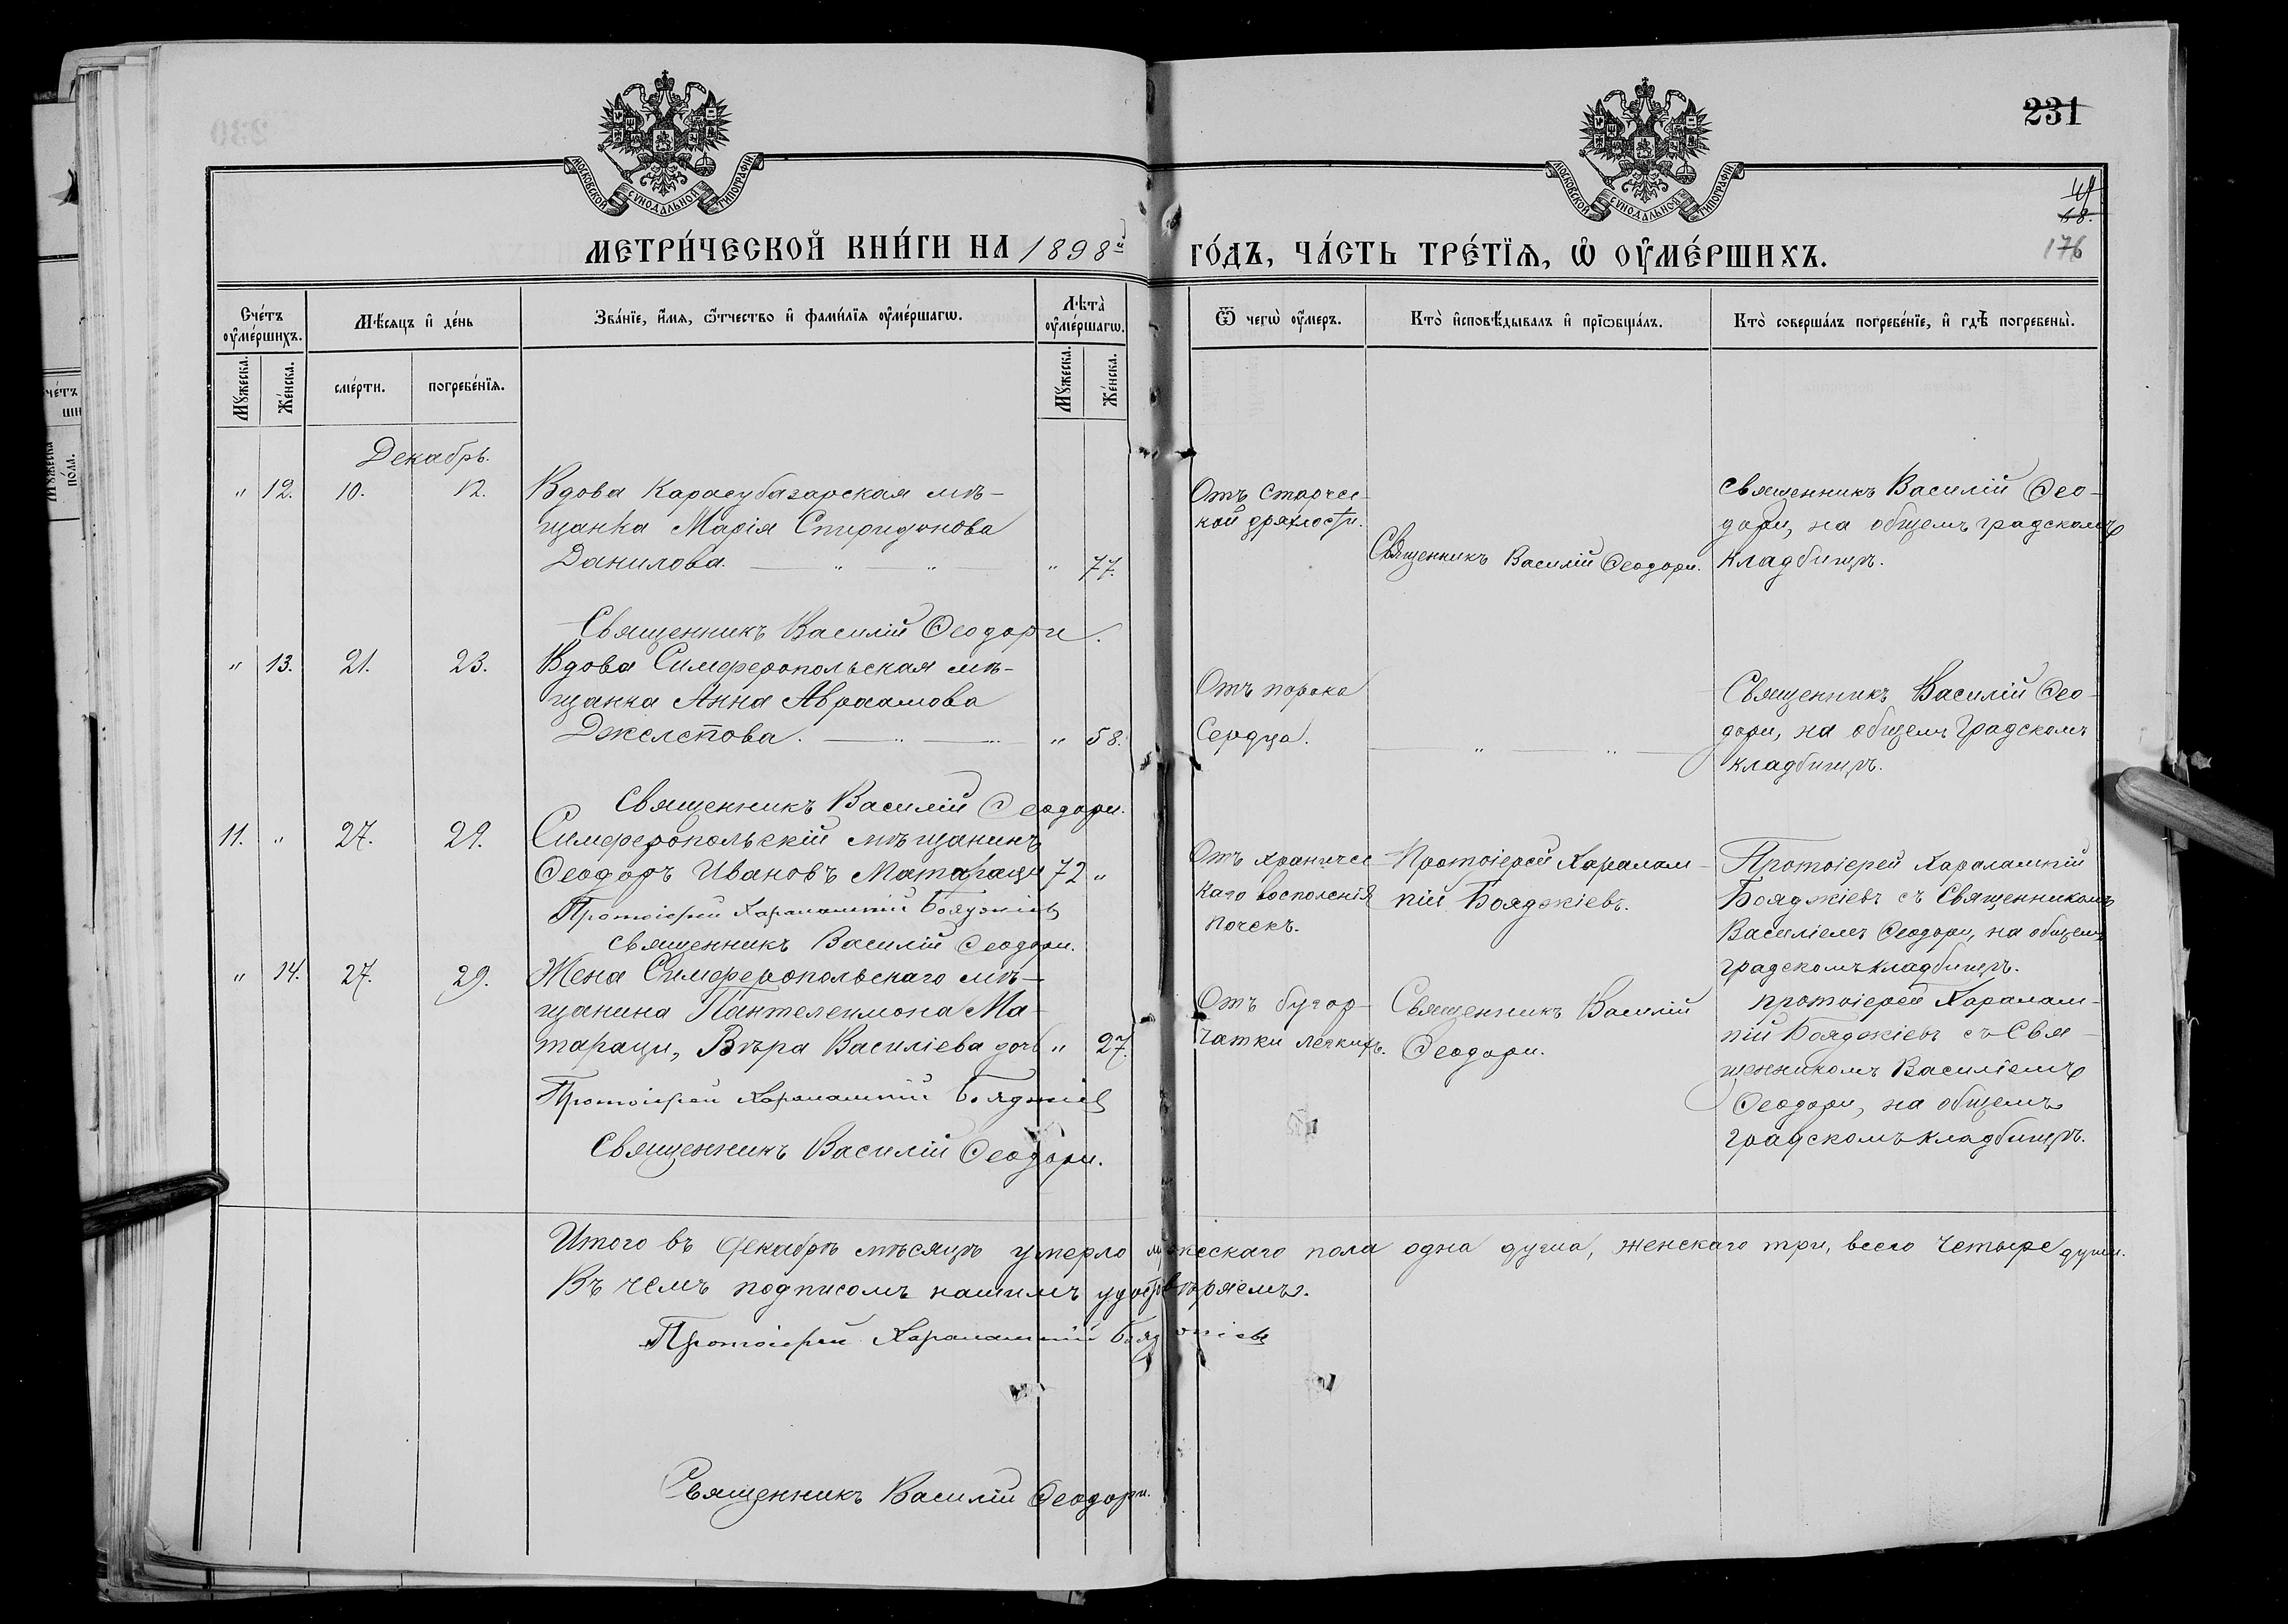 231
49
68.
176
МОСКОВСКОЙ СѴНОДАЛЬНОЙ ТИПОГРАФІИ
МОСКОВСКОЙ СѴНОДАЛЬНОЙ ТИПОГРАФІИ
МЕТРИ́ЧЕСКОЙ КНИ́ГИ НА 1898й ГО́ДЪ, ЧА́СТЬ ТРЕ́ТІѦ, Ѡ ОУМЕ́РШИХЪ.
Сче́тъ оуме́ршихъ.
Мѣ́сѧцъ и де́нь
Зва́нїе, и́мѧ, ѻ҆́тчество и фами́лїѧ оуме́ршагѡ.
Лѣта̀ оуме́ршагѡ.
Ѿ чегѡ̀ оу́меръ.
Кто̀ исповѣ́дывалъ и прїѡбща́лъ.
Кто̀ соверша́лъ погребе́нїе, и гдѣ̀ погребены̀.
Мꙋжеска.
Же́нска.
сме́рти.
погребе́нїѧ.
Мꙋжеска.
Же́нска.
Декабрь.
" 12. 10. 12. Вдова Карасубазарская мѣ-
щанка Марія Спиридонова
Данилова. — " — " — " 77.
Отъ старчес-
кой дряхлости.
Священникъ Василій Ѳеодори.
Священникъ Василій Ѳео-
дори, на общемъ градскомъ
кладбищѣ.
Священникъ Василій Ѳеодори.
" 13. 21. 23. Вдова Симферопольская мѣ-
щанка Анна Авраамова
Джелетова. — " — " " 58.
Отъ порока
Сердца.
" — " —
Священникъ Василій Ѳео-
дори, на общемъ градскомъ
кладбищѣ.
Священникъ Василій Ѳеодори.
11. " 27. 29. Симферопольскій мѣщанинъ
Ѳеодоръ Ивановъ Матараци 72 "
Отъ хроничес-
каго восполенія
почекъ.
Протоіерей Харалам-
пій Бояджіевъ.
Протоіерей Харалампій
Бояджіевъ съ Священникомъ
Василіемъ Ѳеодори, на общемъ
градскомъ кладбищѣ.
Протоіерей Харалампій Бояджіевъ
Священникъ Василій Ѳеодори.
" 14. 27. 29. Жена Симферопольскаго мѣ-
щанина Пантелеимона Ма-
тараци, Вѣра Василіева дочь " 27.
Отъ бугор-
чатки легкихъ.
Священникъ Василій
Ѳеодори.
Протоіерей Харалам-
пій Бояджіевъ съ Свя-
щенникомъ Василіемъ
Ѳеодори, на общемъ
градскомъ кладбищѣ.
Протоіерей Харалампій Бояджіевъ
Священникъ Василій Ѳеодори.
Итого въ Декабрѣ мѣсяцѣ умерло мужескаго пола одна душа, женскаго три, всего четыре души.
Въ чемъ подписомъ нашимъ удостовѣряемъ.
Протоіерей Харалампій Бояджіевъ
Священникъ Василій Ѳеодори.